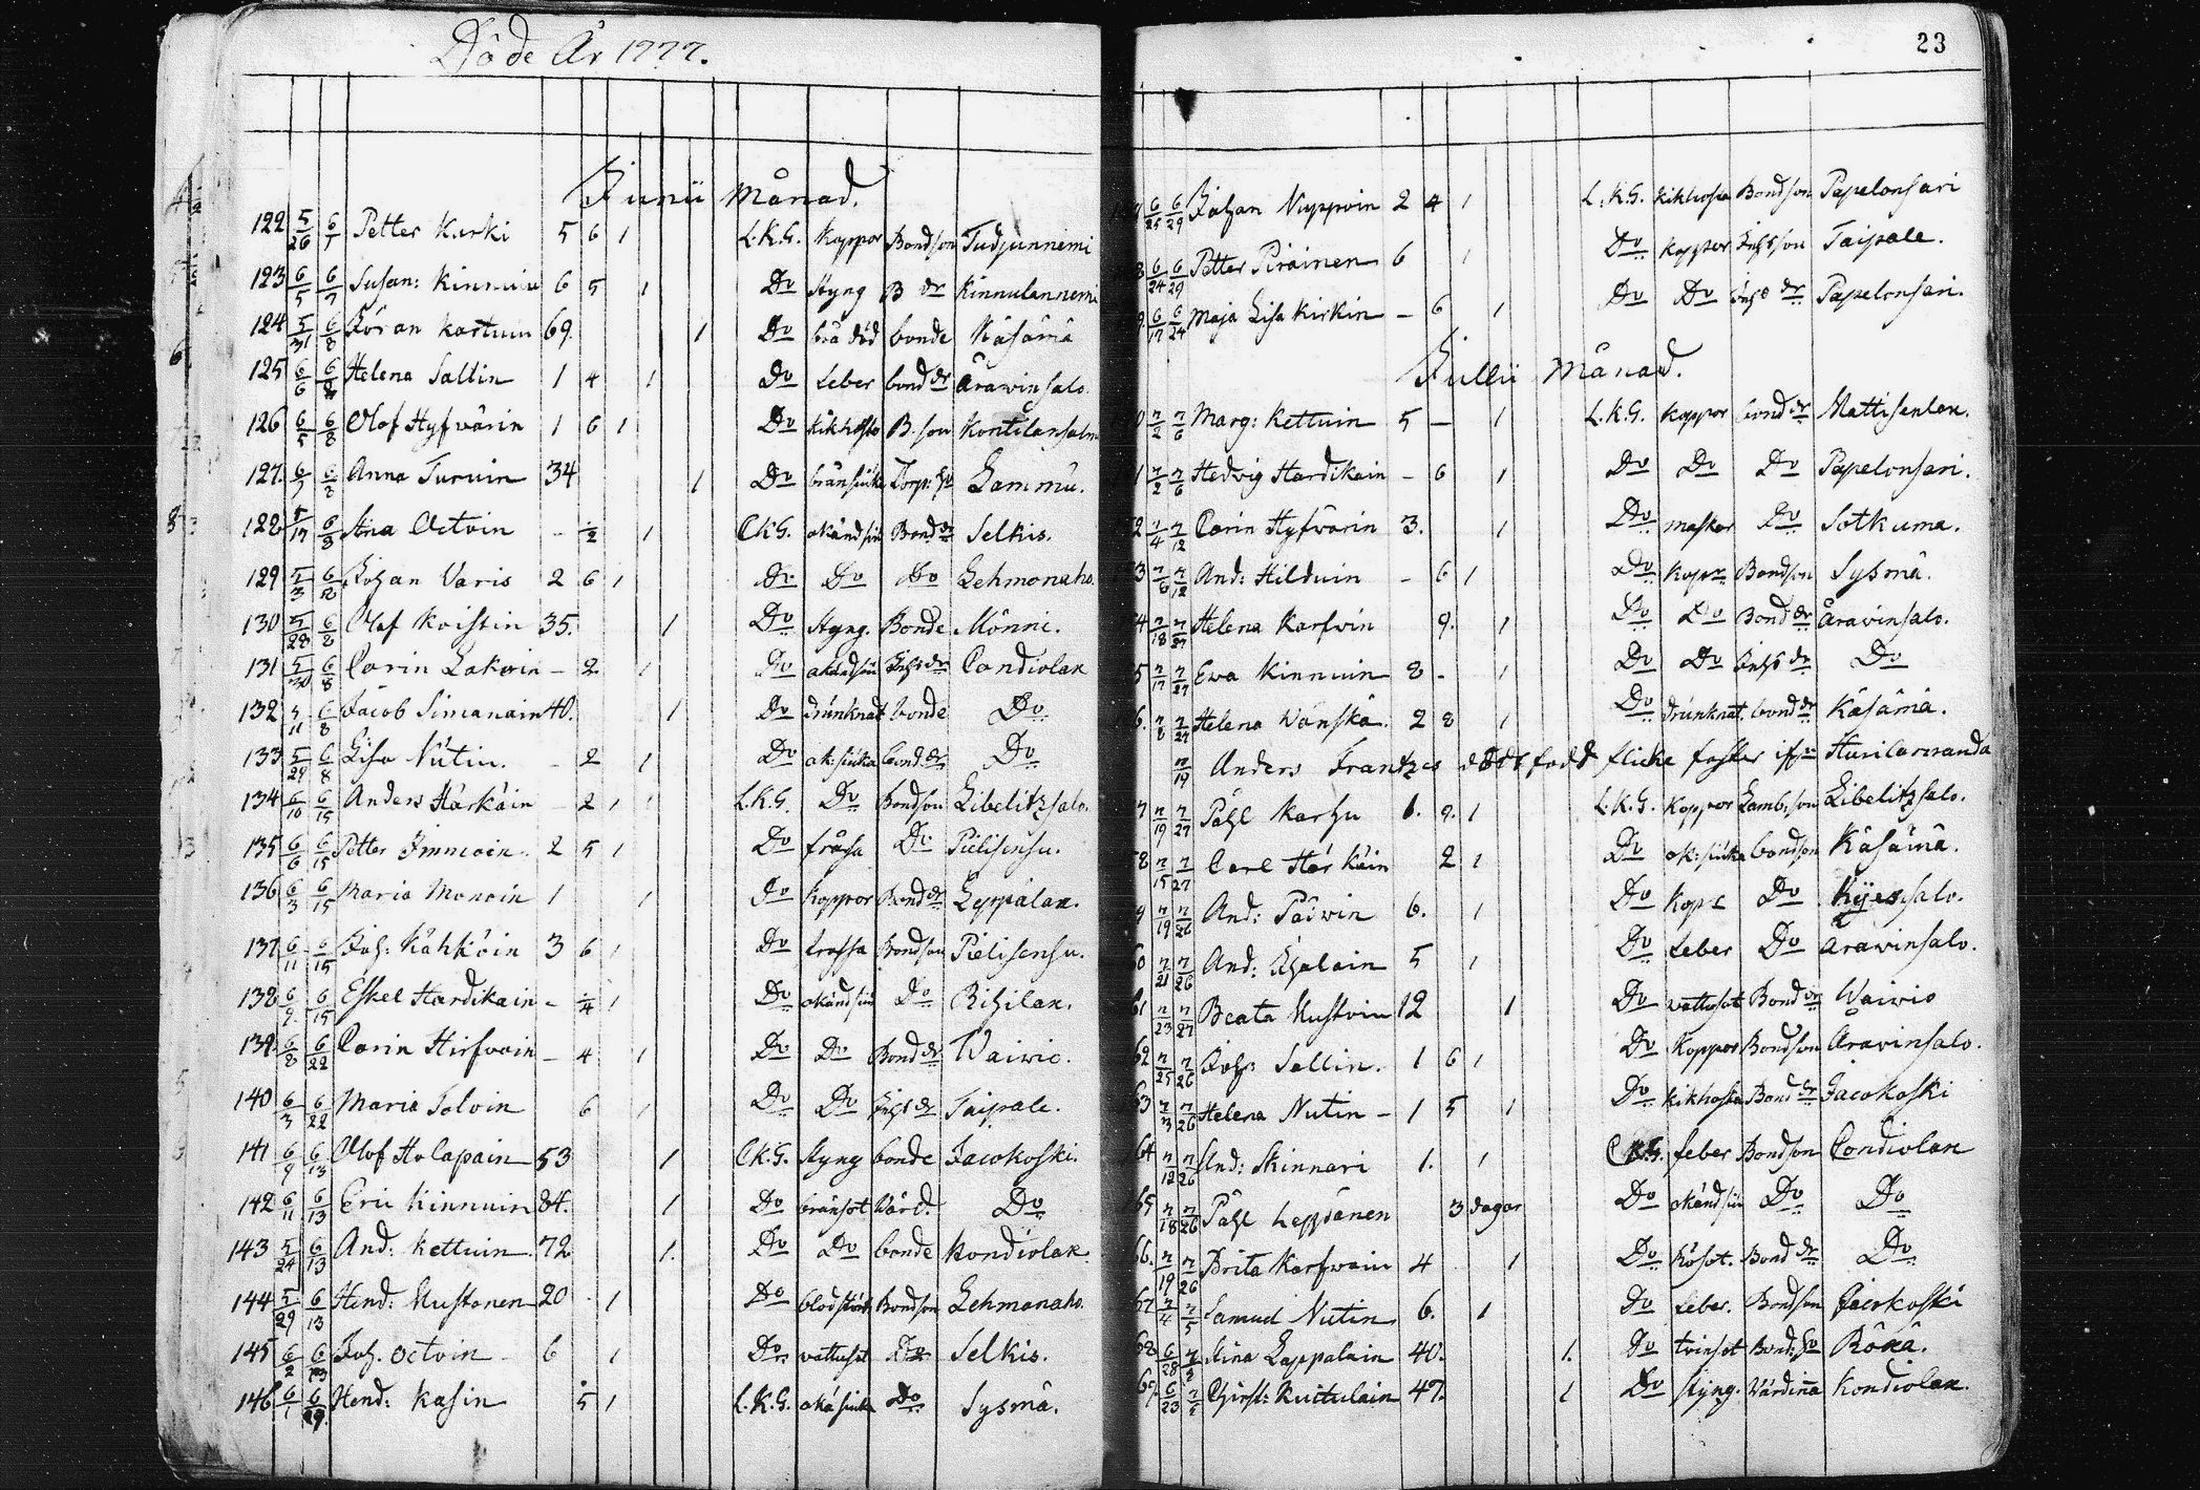 Döde År 1777.
23
Junii Månad.
122 5/26 6/7 Petter Kurki 5 6 1 L.K.G. Koppor Bondson Tudjunnemi
123 6/5 6/7 Susan: Kinnuin 6 5 1 Do Styng B dr Kinnulannemi
124 5/31 6/8 Göran Kortuin 69. 1 Do brå död bonde Käsämä
125 6/6 6/8 Helena Sallin 1 4 1 Do feber bond dr Arawinsalo.
126 6/5 6/8 Olof Hyfvärin 1 6 1 Do kikhosta B.son Kontilansalm
127. 6/7 6/8 Anna Turuin 34 1 Do bränsiuka Torp: hu Lammu.
128 5/17 6/8 Stina Octoin - 1/2 1 C.K.G. okänd siu Bond dr Selkis.
129 5/3 6/8 Johan Varis 2 6 1 Do Do Do Lehmonaho.
130 5/28 6/8 Olof Koistin 35. 1 Do Styng. Bonde Mönni.
131 5/30 6/8 Carin Lakoin - 2 1 Do okändsiu Inhs dr Condiolax
132 5/11 6/8 Jacob Simanain 40. 1 Do drunknat bonde Do
133 5/29 6/8 Lisa Nutin. - 2 1 Do ok: siuka bond dr Do
134 6/10 6/15 Anders Härkäin - 2 1 L.K.G. Do Bondson Libelitzsalo.
135 6/6 6/15 Petter Immoin. 2 5 1 Do fråssa Do Pielisensu.
136 6/3 6/15 Maria Monoin 1 1 Do koppor Bond dr Leppälax.
137 6/11 6/15 Joh: Kähköin 3 6 1 Do trossa Bondson Pielisensu.
138 6/9 6/15 Eskel Hardikain - 1/4 1 Do okänd siu Do Rihilax.
139. 6/8 6/22 Carin Hirfvoin - 4 1 Do Do Bond dr Waivio.
140 6/3 6/22 Maria Tolvin 6 1 Do Do Inhs dr Taipale.
141 6/9 6/13 Olof Holapain 53 1 C.K.G. Styng bonde Jacokoski.
142 6/11 6/13 Eric Kinnuin 84. 1 Do bränsot Wärd. Do
143 5/24 6/13 And: Kettuin 72 1. Do Do bonde Kondiolax
144 5/29 6/13 Hend: Mustonen 20 1 Do blodstört Bondson Lehmonaho.
145 6/2 6/13 Joh. Octoin 6 1 Do vattusot Do Selkis.
146 6/1 6/29. Hend: Kasin 5 1 L.K.G. okä siuka Do Sysmä.
6/25 6/29 Johan Nuppoin 2 4 1 L.K.G. Kikhosta Bondson Papelonsari
6/24 6/29 Petter Piräinen 6 1 Do koppor Inhsson Taipale.
6/17 6/24 Maja Lisa Kirkin - 6 1 Do Do Inhs dr Papelonsari.
Jullii Månad.
7/2 7/6 Marg: Kettuin 5 - 1 L.K.G. Koppor bond dr Mattisenlax.
1 7/2 7/6 Hedvig Hardikain - 6 1 Do Do Do Papelonsari.
2 7/4 7/12 Carin Hyfvärin 3. 1 Do maskar Do Sotkuma.
3 7/6 7/12 And: Hilduin - 6 1 Do Kopor Bondson Sysmä.
4 7/18 7/27 Helena Karfvin 9. 1 Do Do Bond dr Arawinsalo.
5 7/17 7/27 Ewa Kinnuin 8 - 1 Do Do Inhs dr Do
6. 7/8 7/27 Helena Wänskä. 2 8 1 Do drunknat. bond dr Käsämä.
7/19 Anders Frantzes dödt född flicka
7 7/19 7/27 Påhl Karhu 1. 9. 1 L.K.G. Koppor Lamb:son Libelitzsalo.
8 7/15 7/27 Carl Härkäin 2 1 Do ok: siuka bondson Käsämä.
9 7/19 7/26 And: Påivin 6. 1 Do Kopr Do Kijessalo.
60 7/21 7/26 And: Ihalain 5 1 Do feber Do Arawinsalo.
61 7/23 7/27 Beata Mustoin 12 1 Do vattusot Bond dr Waivio
62 7/25 7/26 Joh: Sallin. 1 6 1 Do Koppor Bondson Arawinsalo.
63 7/3 7/26 Helena Nutin - 1 5 1 Do kikhosta Bond dr Jacokoski
64 7/12 7/26 And: Skinnari 1. 1 C.K.G. feber Bondson Condiolax
65 7/18 7/26 Påhl Leppänen 3 dagar Do okänd siu Do Do
66. 7/19 7/26 Brita Karfvain 4 1 Do Rösot. Bond dr Do
67 7/4 7/5 Samuel Nutin 6. 1 Do feber. Bondson Jacokoski
68 6/28 7/2 Stina Lappalain 40. 1. Do tvinsot Bond: hu Rökä.
69. 6/23 7/2 Christ: Kuitulain 47. 1 Do styng. Värdinna Kondiolax.